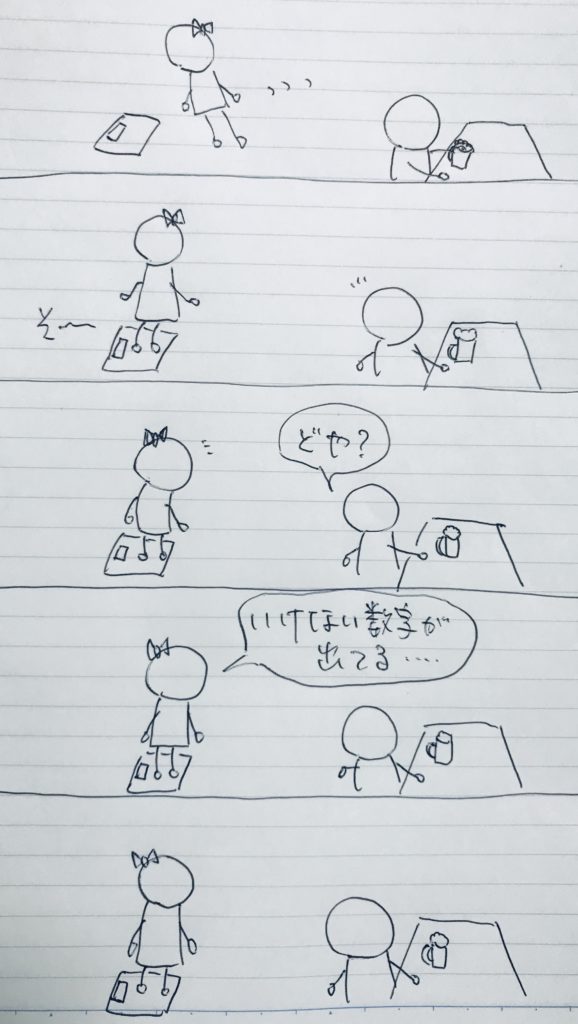 そ〜
どや?
いけない数字が
出てる....